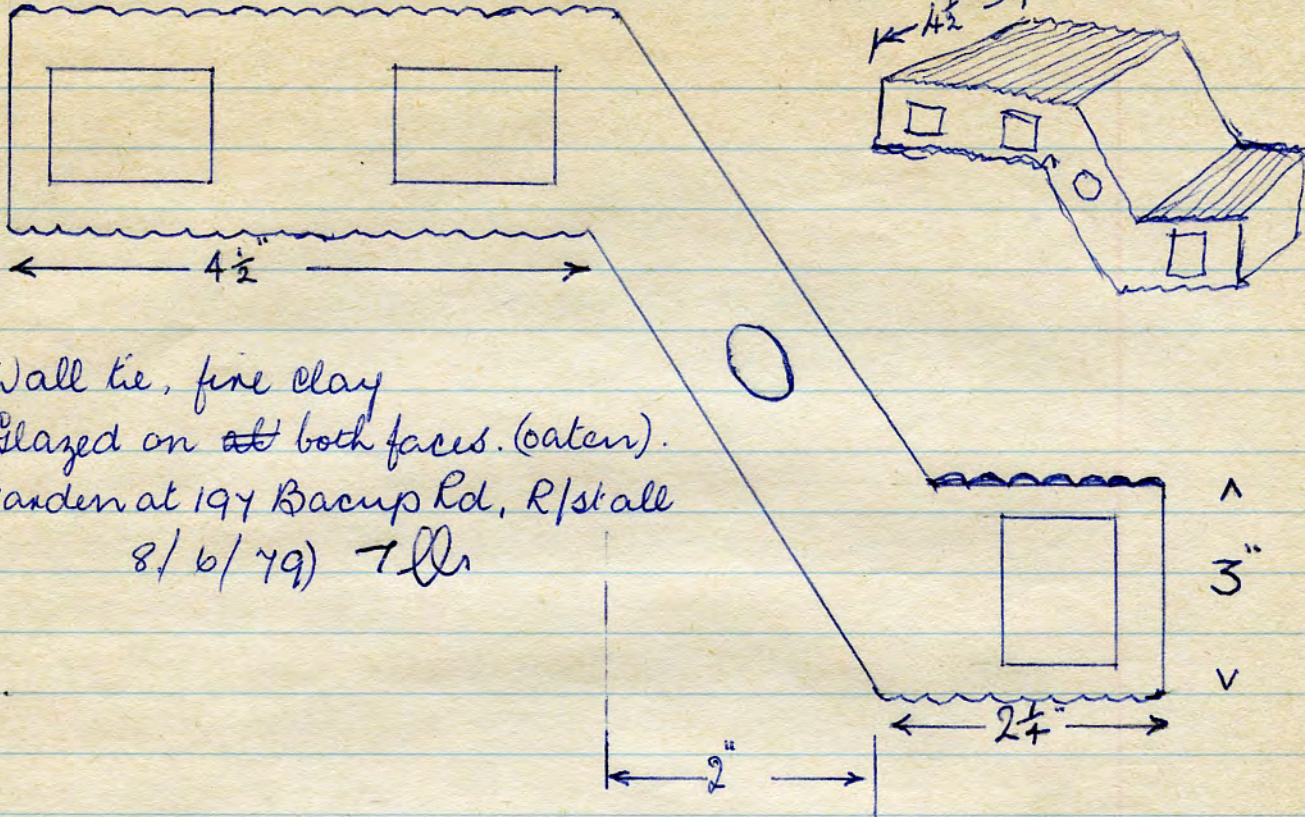 4½
4½"
Wall tie, fire clay
Glazed on all both faces. (
arden at 197 Bacup Rd, R/stall
8/6/79)
3"
2¼"
2"